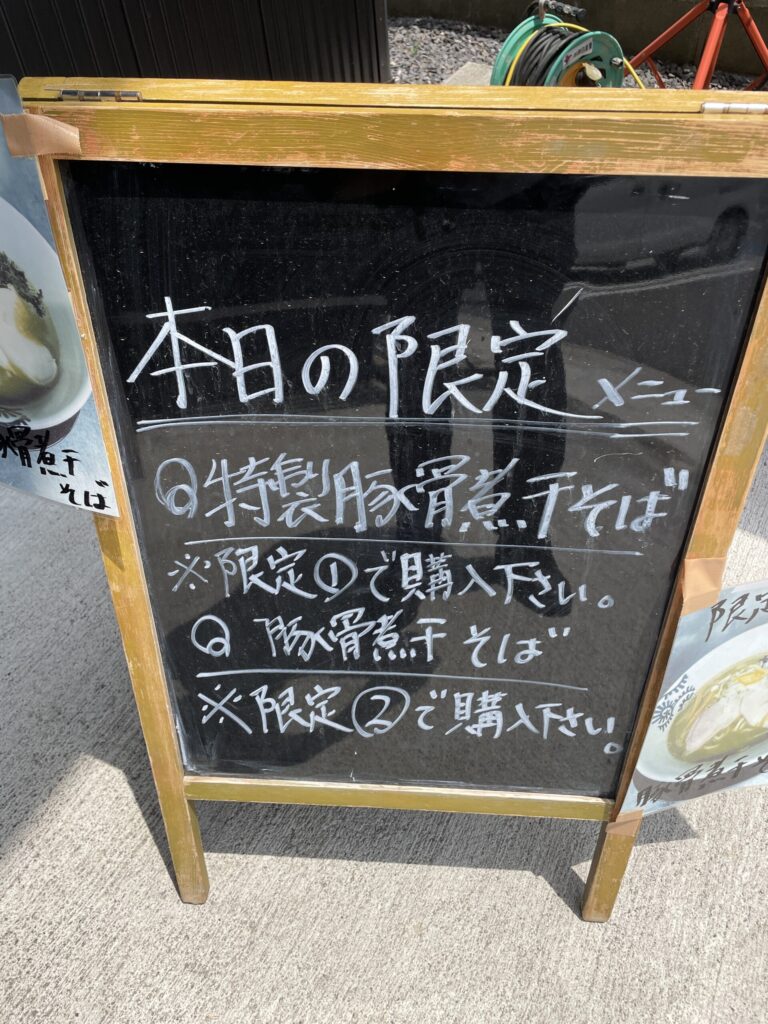 本日の限定メニュー
◎特製豚骨煮干そば
※限定①で購入下さい。
◎ 豚骨煮干そば
※限定②で購入下さい。
骨煮干
そば
限定
豚骨煮干そ